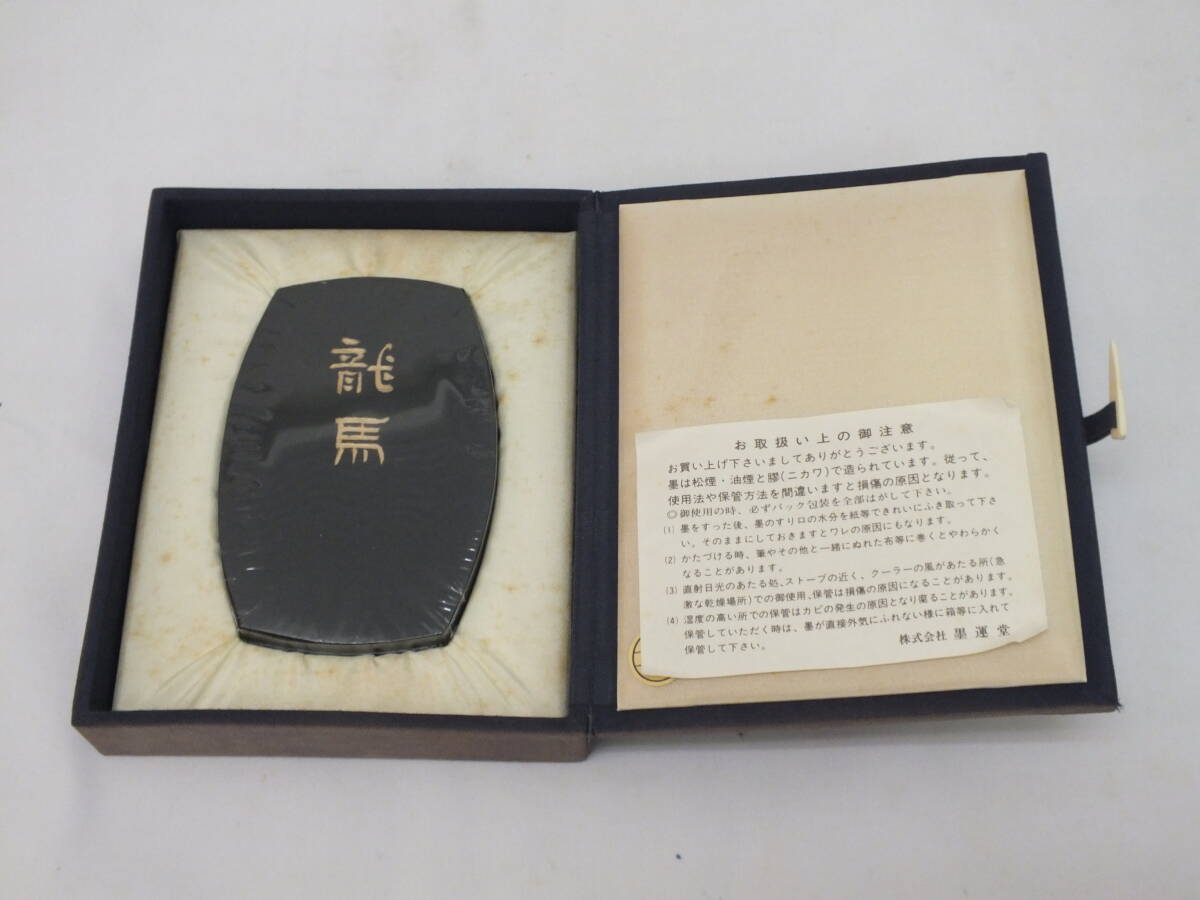 龍
馬
お取扱い上の御注意
お買い上げ下さいましてありがとうございます。
墨は松煙・油煙と膠(ニカワ)で造られています。従って、
使用法や保管方法を間違いますと損傷の原因となります。
◎御使用の時、必ずパック包装を全部はがして下さい。
(1) 墨をすった後、墨のすり口の水分を紙等できれいにふき取って下さ
い。そのままにしておきますとワレの原因にもなります。
(2) かたづける時、筆やその他と一緒にぬれた布等に巻くとやわらかく
なることがあります。
(3) 直射日光のあたる処、ストーブの近く、クーラーの風があたる所(急
激な乾燥場所)での御使用、保管は損傷の原因になることがあります。
(4) 湿度の高い所での保管はカビの発生の原因となり腐ることがあります。
保管していただく時は、墨が直接外気にふれない様に箱等に入れて
保管して下さい。
株式会社 墨運堂